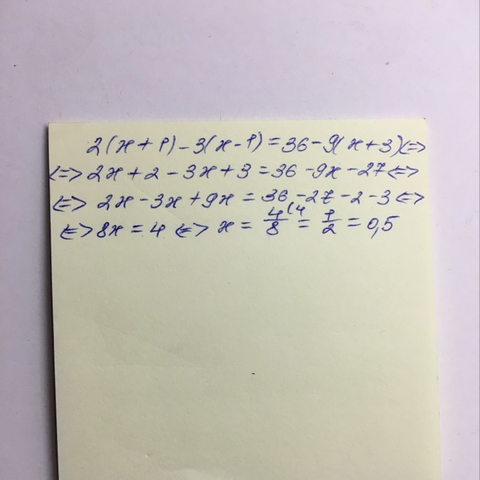 2(x+1)-3(x-1)=36-9(x+3)<=>
<=> 2x+2-3x+3=36-9x-27<=>
<=> 2x-3x+9x=36-27-2-3<=>
<=> 8x=4 <=> x=4/8(4=1/2=0,5